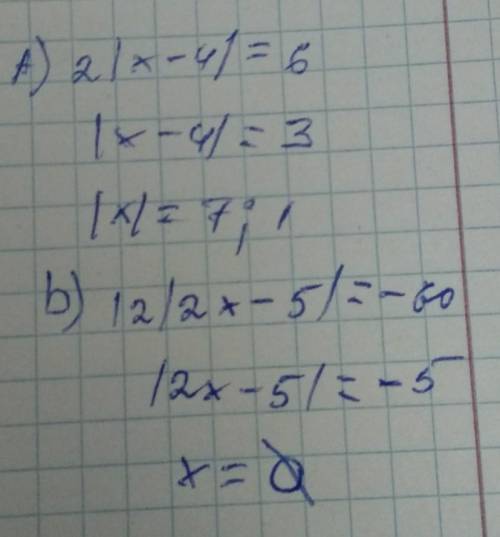 A) 2|x-4| = 6
|x-4| = 3
|x| = 7; 1
b) 12|2x-5| = -60
|2x-5| = -5
x = Ø